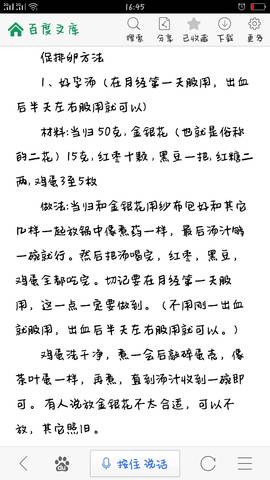 16:45
百度文库
搜索 分享 已收藏 下载 更多
促排卵方法
1、好孕汤（在月经第一天服用，出血
后半天左右服用就可以）
材料:当归50克,金银花（也就是俗称
的二花）15克,红枣十颗,黑豆一把,红糖二
两,鸡蛋3至5枚
做法:当归和金银花用纱布包好和其它
几样一起放锅中像煮药一样，最后汤汁够
一碗就行。然后把汤喝完，红枣，黑豆，
鸡蛋全都吃完。切记要在月经第一天服
用，这一点一定要做到。（不用刚一出血
就服用，出血后半天左右服用就可以。）
鸡蛋洗干净，煮一会后敲碎蛋壳，像
茶叶蛋一样，再煮，直到汤汁收到一碗即
可。有人说放金银花不太合适，可以不
放，其它照旧。
按住说话